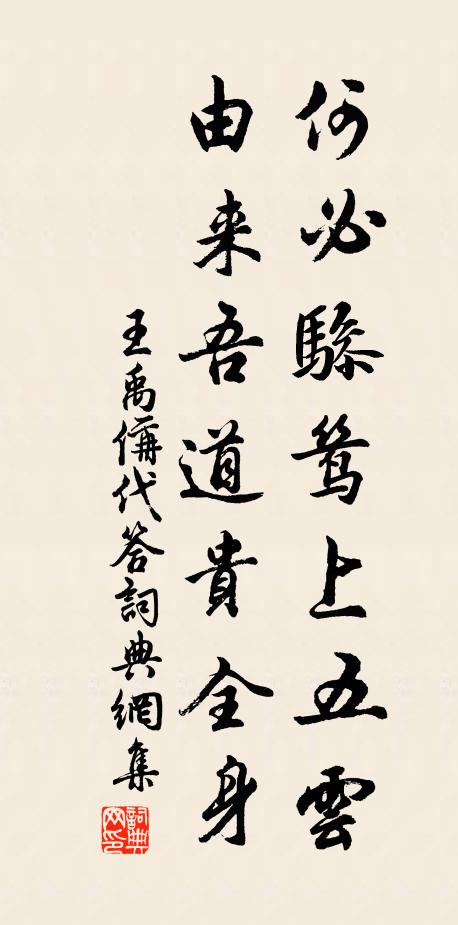 何必驂鸞上五雲
由来吾道貴全身
王禹偁代答詞典網集
詞典网印